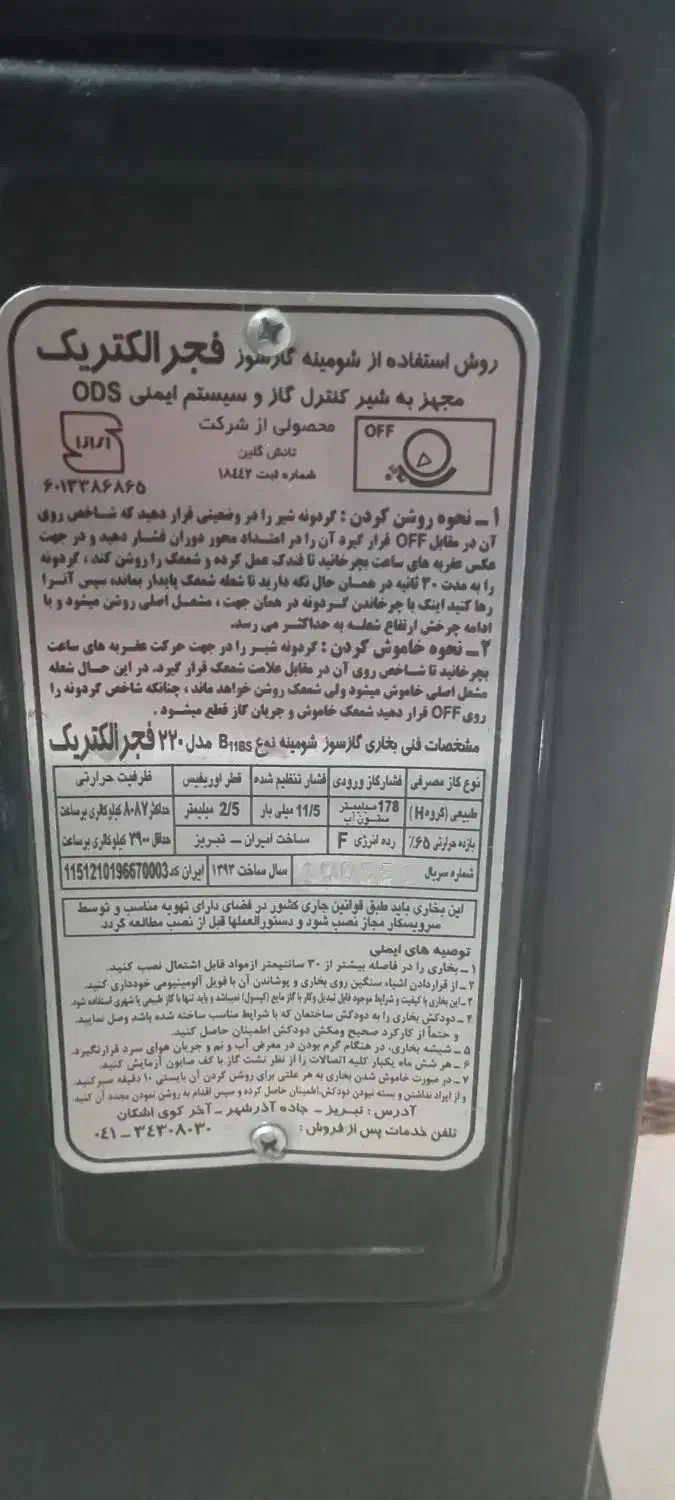 روش استفاده از شومینه گازسوز فجر الکتریک
مجهز به شیر کنترل گاز و سیستم ایمنی ODS
OFF
محصولی از شرکت
تابش گلین
شماره ثبت ۱۸۴۴۲
۶۰۱۳۳۸۶۸۶۵
۱ــ نحوه روشن کردن : گردونه شیر را در وضعیتی قرار دهید که شاخص روی
آن در مقابل OFF قرار گیرد آن را در امتداد محور دوران فشار دهید و در جهت
عکس عقربه های ساعت بچرخانید تا فندک عمل کرده و شمعک را روشن کند ، گردونه
را به مدت ۳۰ ثانیه در همان حال نگه دارید تا شعله شمعک پایدار بماند، سپس آنـرا
رها کنید اینک با چرخاندن گـردونه در همان جهت ، مشعـل اصلی روشن میشود و با
ادامه چرخش ارتفاع شعلـه به حداکثـر می رسد.
۲ــ نحوه خاموش کردن : گردونه شیـر را در جهت حرکت عقـربه های ساعت
بچرخانید تا شـاخص روی آن در مقابل علامت شمعک قرار گیرد. در این حـال شعله
مشعل اصلی خاموش میشود ولی شمعک روشن خواهد ماند ، چنانکه شاخص گردونه را
روی OFF قرار دهید شمعک خاموش و جریان گاز قطع میشـود .
مشخصات فنی بخاری گازسوز شومینه نوع B11BS مدل ۲۲۰ فجر الکتریک
نوع گاز مصرفی فشار گاز ورودی فشار تنظیم شده قطر اوریفیس ظرفیت حرارتی
طبیعی (گروه H) 178 میلیمتر ستون آب 11/5 میلی بار 2/5 میلیمتر حداکثر ۸۰۸۷ کیلوکالری بر ساعت
بازده حرارتی ۶۵٪ رده انرژی F ساخت ایـران ــ تبـریز حداقل ۲۹۰۰ کیلوکالری بر ساعت
شماره سریال سال ساخت ۱۳۹۳ ایران کد 1151210196670003
این بخاری باید طبق قوانین جاری کشور در فضای دارای تهویه مناسب و توسط
سرویسکار مجاز نصب شود و دستورالعملها قبل از نصب مطالعه گردد.
توصیه های ایمنی
۱ ــ بخاری را در فاصله بیشتر از ۳۰ سانتیمتر ازمواد قابل اشتعال نصب کنید.
۲ ــ از قراردادن اشیاء سنگین روی بخاری و پوشاندن آن با فویل آلومینیومی خودداری کنید.
۳ ــ این بخاری با کیفیت و شرایط موجود قابل تبدیل وکار با گاز مایع (کپسول) نمیباشد و باید تنها با گاز طبیعی یا شهری استفاده شود.
۴ ــ دودکش بخاری را به دودکش ساختمان که با شرایط مناسب ساخته شده باشد وصل نمایید.
و حتماً از کارکرد صحیح ومکش دودکش اطمینان حاصل کنید.
۵ ــ شیشه بخاری، در هنگام گرم بودن در معرض آب و نم و جریان هوای سرد قرارنگیرد.
۶ ــ هر شش ماه یکبار کلیه اتصالات را از نظر نشت گاز با کف صابون آزمایش کنید.
۷ ــ در صورت خاموش شدن بخاری به هر علتی برای روشن کردن آن بایستی ۱۰ دقیقه صبر کنید.
و از ایراد نداشتن و بسته نبودن دودکش،اطمینان حاصل کرده و سپس اقدام به روشن نمودن مجدد آن کنید.
آدرس : تبـریز ــ جاده آذرشهر ــ آخر کوی اشکان
تلفن خدمات پس از فروش : ۳۴۳۰۸۰۳۰ ــ ۰۴۱